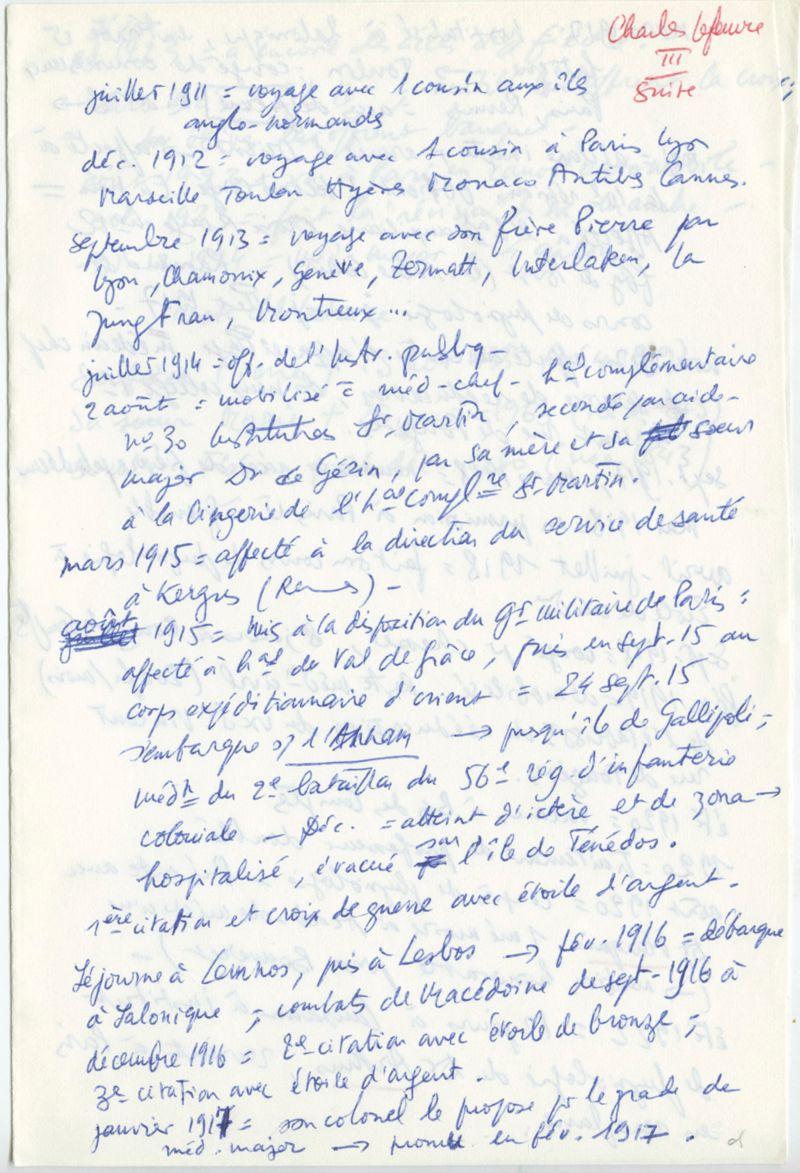 Charles Lefeuvre
III
Suite
juillet 1911 = voyage avec 1 cousin aux îles
anglo-normands
déc. 1912 = voyage avec 1 cousin à Paris Lyon
Marseille Toulon Hyères Monaco Antibes Cannes.
septembre 1913 = voyage avec son frère Pierre par
Lyon, Chamonix, Genève, Zermatt, Interlaken, la
Jungfrau, Montreux...
juillet 1914 = off. de l'Instr. publiq -
2 août = mobilisé = méd-chef - hal complémentaire
no 30 Institution St Martin, secondé par aide-
major Dr de Gézin, par sa mère et sa soeur
à la lingerie de l'hal complre St Martin.
mars 1915 = affecté à la direction du service de santé
à Kergus (Rennes) -
août 1915 = mis à la disposition du Gr militaire de Paris =
affecté à hal de Val de Grâce, puis en sept. 15 au
corps expéditionnaire d'orient = 24 sept. 15
s'embarque s/ l'Annam → presqu'île de Gallipoli ;
médn du 2e bataillon du 56e rég d'infanterie
coloniale - Déc. = atteint d'ictère et de zona →
hospitalisé, évacué sur l'île de Ténédos.
1ère citation et croix de guerre avec étoile d'argent.
Séjourne à Lemnos, puis à Lesbos → fév. 1916 = débarque
à Salonique ; combats de Macédoine de sept - 1916 à
décembre 1916 = 2e citation avec étoile de bronze ;
3e citation avec étoile d'argent.
janvier 1917 = son colonel le propose pr le grade de
méd. major → promu en fév. 1917.